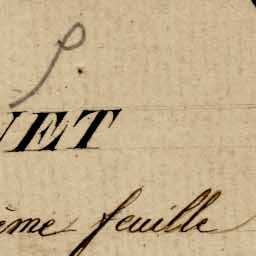 P.
NET
ème feuille